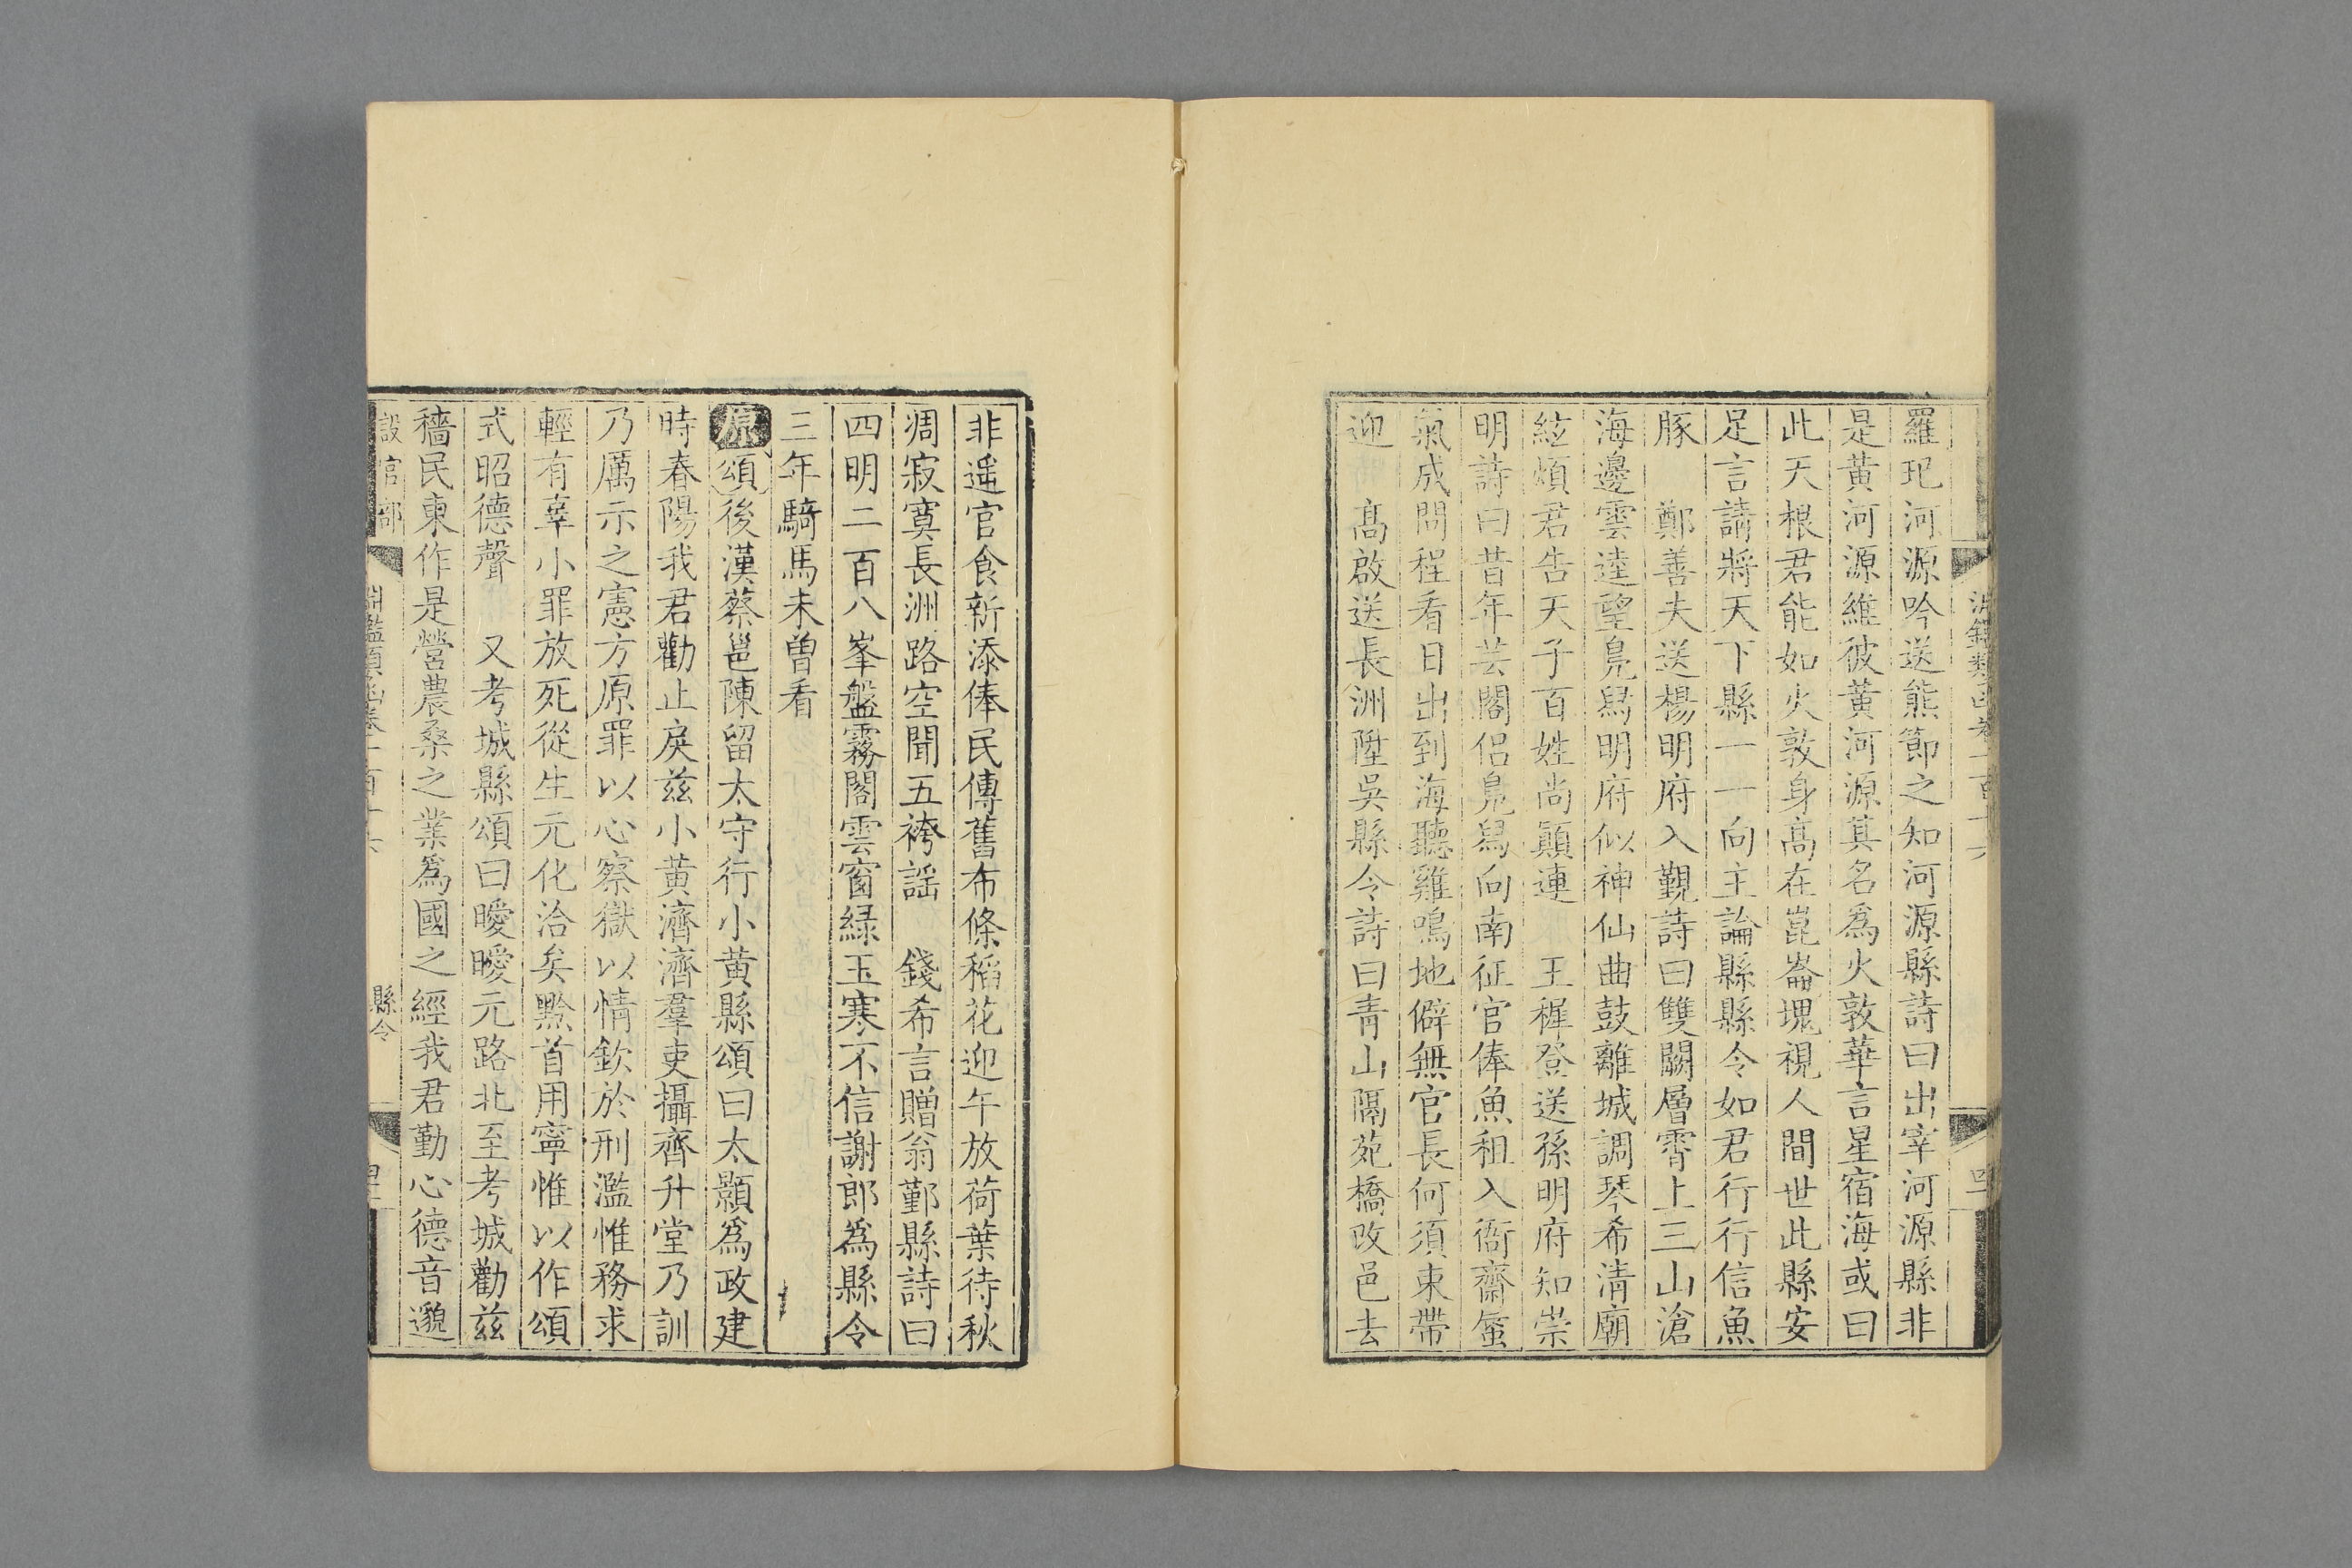 羅玘河源吟送熊節之知河源縣詩曰出宰河源縣非
是黃河源維彼黃河源其名爲火敦華言星宿海或曰
此天根君能如火敦身髙在崑崙塊視人間世此縣安
足言請將天下縣一一向主論縣縣令如君行行信魚
豚　鄭善夫送楊明府入覲詩曰雙闕層霄上三山滄
海邊雲逵望鳧舃明府似神仙曲鼓離城調琴希清廟
絃煩君告天子百姓尚顚連　王穉登送孫明府知崇
明詩曰昔年芸閣侶鳧舃向南征官俸魚租入衙齋蜃
氣成問程看日出到海聽雞鳴地僻無官長何須束帶
迎　髙啟送長洲陞吳縣令詩曰青山隔苑橋改邑去
非遥官食新添俸民傳舊布條稻花迎午放荷葉待秋
凋寂寞長洲路空聞五袴謡　錢希言贈翁鄞縣詩曰
四明二百八峯盤霧閣雲窗緑玉寒不信謝郎爲縣令
三年騎馬未曽看
原頌後漢蔡邕陳留太守行小黄縣頌曰太顥爲政建
時春陽我君勸止戾兹小黄濟濟羣吏攝齊升堂乃訓
乃厲示之憲方原罪以心察獄以情欽於刑濫惟務求
輕有辜小罪放死從生元化洽矣黔首用寧惟以作頌
式昭德聲　又考城縣頌曰曖曖元路北至考城勸兹
穡民東作是營農桑之業爲國之經我君勤心德音邈
設官部
縣令